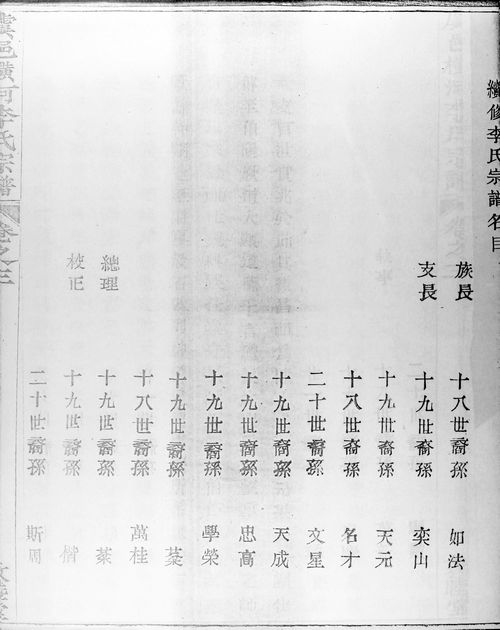 續修李氏宗譜名目
族長 十八世裔孫 如法
支長 十九世裔孫 奕山
十九世裔孫 天元
十八世裔孫 名才
二十世裔孫 文星
十九世裔孫 天成
十九世裔孫 忠高
十九世裔孫 學榮
十九世裔孫 棻
十八世裔孫 萬桂
總理 十九世裔孫 棻
校正 十九世裔孫 偕
二十世裔孫 斯周
橫河李氏宗譜 卷之二